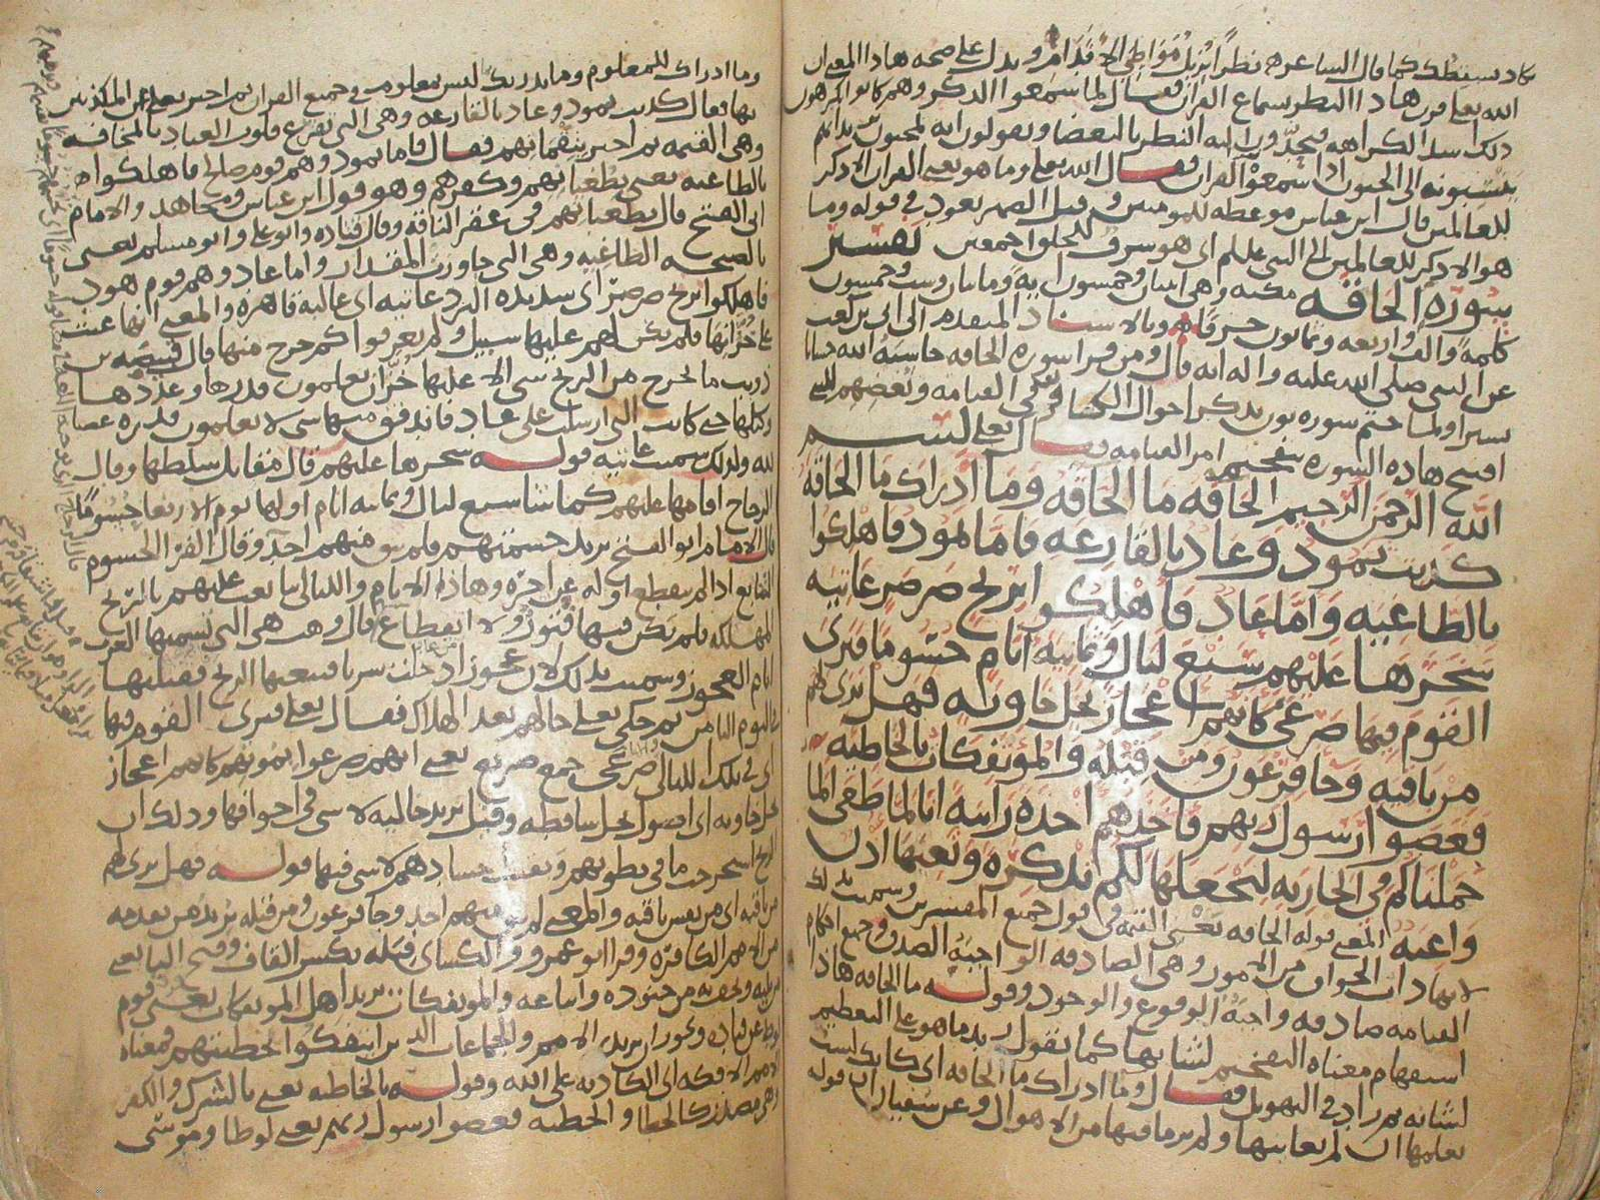 كاد يسقطك كما قال الشاعر نظرا يزيل مواطئ الاقدام ويدل على صحة هاذا المعنى ان
الله تعالى قرن هاذا النظر بسماع القران فقال لما سمعوا الذكر وهم كانوا يكرهون
ذلك اشد الكراهه فيحدون اليه النظر بالبغضا ويقولون انه لمجنون
ينسبونه الى الجنون اذا سمعوا القران فقال الله تعالى وما هو يعني القران الا ذكر
للعالمين قال ابن عباس موعظه للمومنين وقيل الضمير يعود في قوله وما
هو الا ذكر للعالمين الى النبي عليلم اي هو شرف للخلق اجمعين تفسير
سورة الحاقه مكيه وهي اثنان وخمسون ايه ومايتان وست وخمسون
كلمة والف واربعه وثمانون حرفا وبالاسناد المتقدم الى ابي بن كعب
عن النبي صلى الله عليه واله انه قال ومن قرا سورة الحاقه حاسبه الله حسابا
يسيرا ولما ختم سورة نون بذكر احوال الكفار في القيامه وبغضهم للنبي
افتتح هاذه السورة بتفخيم امر القيامه فقال تعالى بسم
الله الرحمن الرحيم الحاقه ما الحاقه وما ادراك ما الحاقة
كذبت ثمود وعاد بالقارعه فاما ثمود فاهلكوا
بالطاغيه واما عاد فاهلكوا بريح صرصر عاتيه
سخرها عليهم سبع ليال وثمانيه ايام حسوما فترى
القوم فيها صرعى كانهم اعجاز نخل خاويه فهل ترى لهم
من باقيه وجا فرعون ومن قبله والموتفكات بالخاطيه
فعصوا رسول ربهم فاخذهم اخذة رابيه انا لما طغى الما
حملناكم في الجاريه لنجعلها لكم تذكرة وتعيها اذن
واعيه المعنى قوله الحاقه يعني القيمه في قول جميع المفسرين وسميت بذلك
لانها ذات الحواق من الامور وهي الصادقه الواجبة الصدق وجميع احكام
القيامه صادقه واجبة الوقوع والوجود وقوله ما الحاقه هاذا
استفهام معناه التفخيم لشانها كما تقول زيد ما هو على التعظيم
لشانه ثم زاد في التهويل فقال وما ادراك ما الحاقه اي كانك لست
تعلمها اذ لم تعاينها ولم تر ما فيها من الاهوال وعن سفيان ان قوله
وما ادراك للمعلوم وما يدريك لما ليس بمعلوم في جميع القران ثم اخبر تعالى عن المكذبين
بها فقال كذبت ثمود وعاد بالقارعه وهي التي تقرع قلوب العباد بالمخافه
وهي القيمه ثم اخبر بنقمته بهم فقال فاما ثمود وهم قوم صالح فاهلكوا
بالطاغيه يعني بطغيانهم وكفرهم وهو قول ابن عباس ومجاهد والامام
ابي الفتح قال بطغيانهم في عقر الناقة وقال قتاده وابو علي وابو مسلم يعني
بالصيحه الطاغيه وهي التي جاوزت المقدار واما عاد وهم قوم هود
فاهلكوا بريح صرصر اي شديدة البرد عاتيه اي عاليه قاهرة والمعنى انها عتت
على خزانها فلم يكن لهم عليها سبيل ولم يعرفوا كم خرج منها قال قبيصه بن
ذويب ما يخرج من الريح شي الا عليها خزان يعلمون قدرها وعددها
وكيلها حتى كانت التي ارسلت على عاد فاندفق منها شي لا يعلمون قدره غضبا
لله ولذلك سميت عاتيه قوله سخرها عليهم قال مقاتل سلطها وقال
الزجاج اقامها عليهم كما شا سبع ليال وثمانيه ايام اولها يوم الاربعا حسوما
قال الامام ابو الفتح يريد حسمتهم فلم يبق منهم احد وقال الفرا الحسوم
التتابع اذا لم ينقطع اوله عن اخره وهاذه الايام والليالي تتابعت عليهم بالريح
المهلكه فلم يكن فيها فتور ولا انقطاع قال وهب هي التي تسميها العرب
ايام العجوز وسميت بذلك لان عجوزا دخلت سربا فتبعتها الريح فقتلتها
في اليوم الثامن ثم حكى تعالى حالهم بعد الهلاك فقال تعالى فترى القوم فيها
اي في تلك الليالي والايام صرعى جمع صريع يعني انهم صرعوا بموتهم كانهم اعجاز
نخل خاويه اي اصول نخل ساقطه وقيل يريد خاليه لا شي في اجوافها وذلك ان
الريح استخرجت ما في بطونهم وبقيت اجسادهم لا شي فيها قوله فهل ترى لهم
من باقيه اي من نفس باقيه والمعنى لم يبق منهم احد وجا فرعون ومن قبله يريد من تقدمه
من الامم الكافره وقرا ابو عمرو والكسائي قبله بكسر القاف وفتح البا يعني
من يليه ويحف به من جنوده واتباعه والموتفكات يريد اهل الموتفكات يعني قوم
لوط عن قتاده ويجوز ان يريد الامم والجماعات الذين ايتفكوا بخطيئتهم فمعناه
الامم الافكه اي الكاذبه على الله وقوله بالخاطيه يعني بالشرك والكفر
وهي مصدر كالخطا والخطيه فعصوا رسول ربهم يعني لوطا وموسى